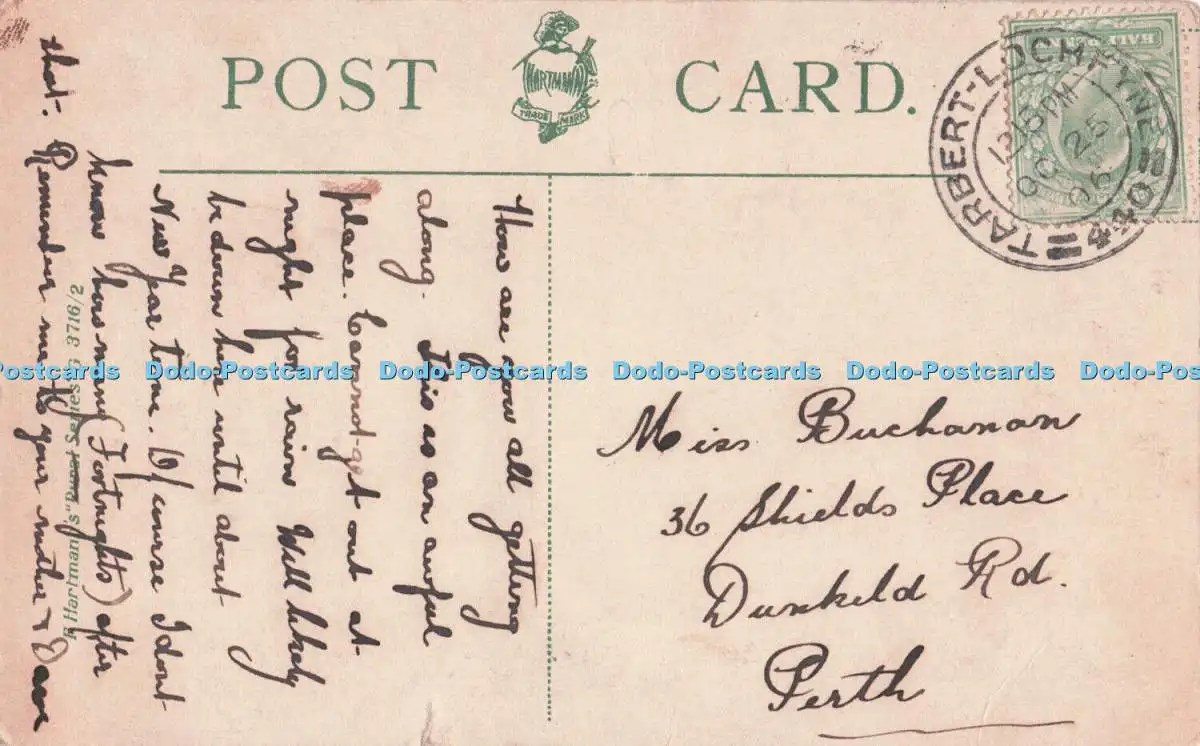 POST CARD.
HARTMANN
TRADE MARK
HALF
TARBERT-LOCHFYNE
440
PM
OC 25
06
How are you all getting
along. This is an awful
place. Cannot get out at
night for rain Will likely
be down here until about
New Year time. Of course I dont
know hors many (Fortnights) after
that.
Remember me to your mother &
Miss Buchanan
36 Shields Place
Dunkeld Rd.
Perth
Hartmann's Series G 3716/2
Dodo-Postcards Dodo-Postcards Dodo-Postcards Dodo-Postcards Dodo-Postcards Dodo-Pos